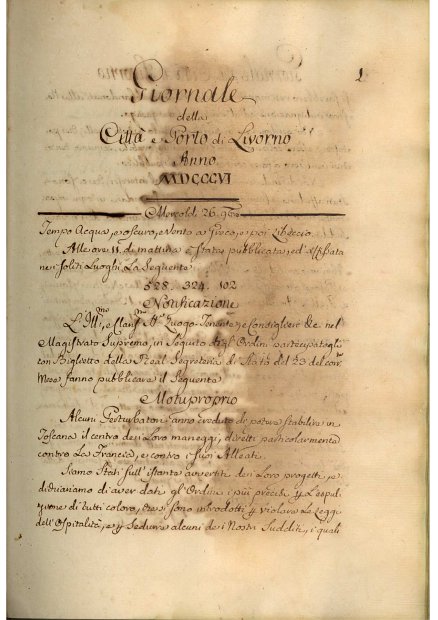 1
Giornale
della
Città e Porto di Livorno
Anno
MDCCCVI
Mercoldì 26. 9bre
Tempo Acqua, e oscuro, e Vento a Greco, e poi Libeccio
Alle ore 11. di mattina è stata pubblicata, ed
ne i soliti Luoghi La Seguente
528. 324. 102
Notificazione
L'Ill.mo, e Luogo-Tenente, e Consiglieri &c. nel
Magistrato Supremo, in Sequito degl' Ordini partecipatogli
con Biglietto della Real Segreteria di Stato del 23 del cor.te
Mese fanno pubblicare il Seguente
Motuproprio
Alcuni Perturbatori anno creduto di potere stabilire in
Toscana il centro dei Loro maneggi, diretti particolarmente
contro La Francia, e contro i Suoi Alleati.
Siamo Stati sull' istante avvertiti dei Loro progetti, e
di aver dati gl' Ordini i più precisi
di tutti coloro, che si sono introdotti violare Le Leggi
dell' Ospitalità, e Sedurre alcuni dei Nostri Sudditi, i quali